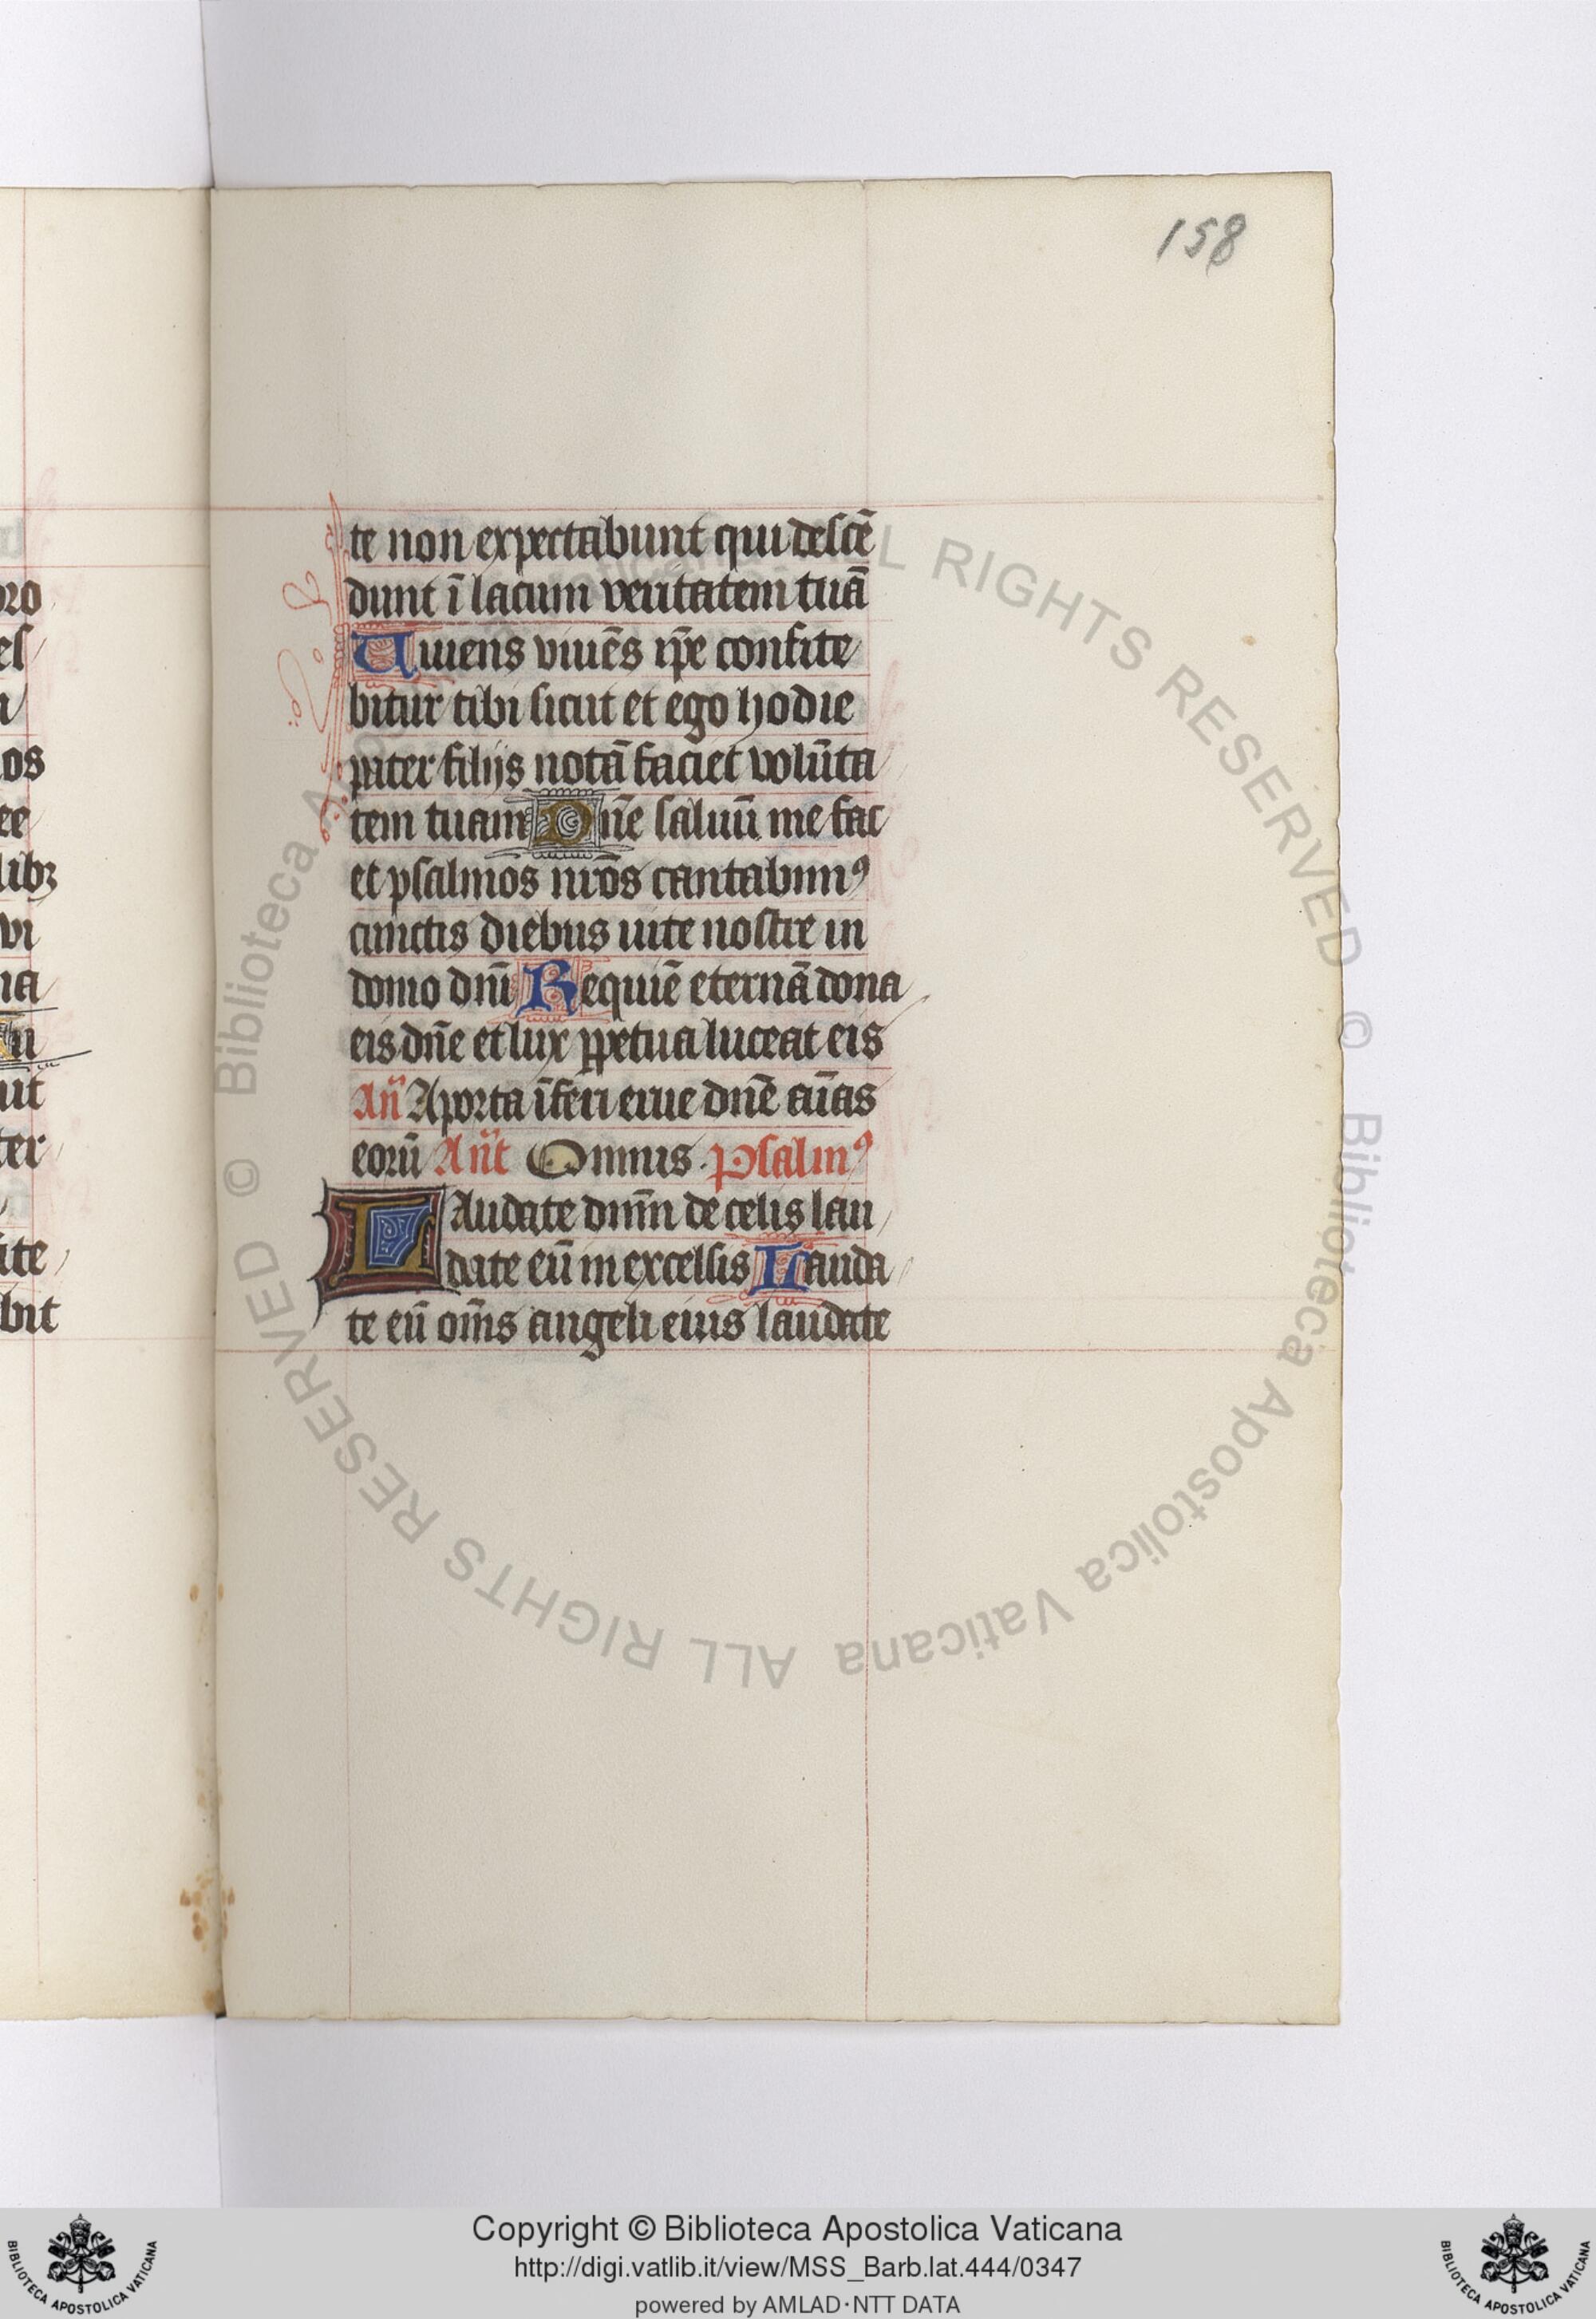 158
te non expectabunt qui descē
dunt ī lacum veritatem tuā
Uiuens viuēs ip̄e confite
bitur tibi sicut et ego hodie
pater filijs notā faciet volūta
tem tuam Dn̄e saluū me fac
et psalmos nr̄os cantabimꝰ
cunctis diebus uite nostre in
domo dn̄i Requiē eternā dona
eis dn̄e et lux ꝑpetua luceat eis
An̄ A porta īferi erue dn̄e aīas
eorū An̄t Omnis. psalmꝰ
LAudate dnm̄ de celis lau
date eū in excelsis Lauda
te eū om̄s angeli eius laudate
oro
el
os
ee
libꝫ
vi
na
ut
ter
ite
bit
© Biblioteca Apostolica Vaticana ALL RIGHTS RESERVED © Biblioteca Apostolica Vaticana ALL RIGHTS RESERVED
Copyright © Biblioteca Apostolica Vaticana
http://digi.vatlib.it/view/MSS_Barb.lat.444/0347
powered by AMLAD·NTT DATA
BIBLIOTECA APOSTOLICA VATICANA
BIBLIOTECA APOSTOLICA VATICANA